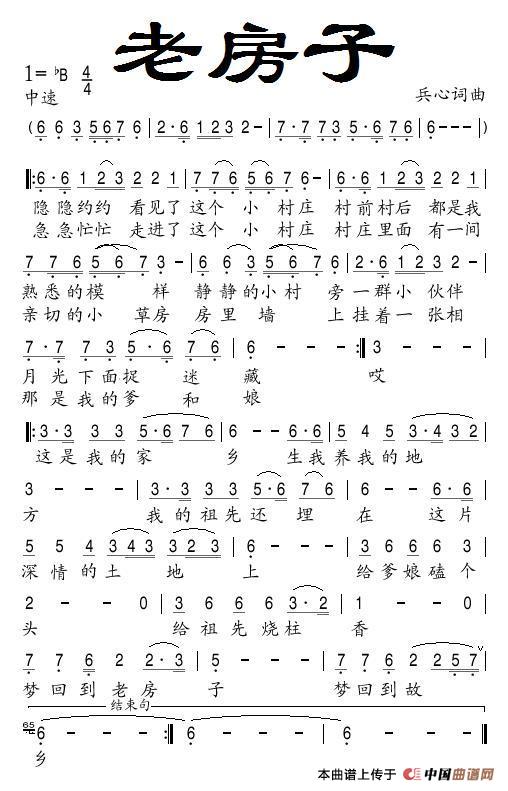 老房子
1= ♭B 4/4
中速
兵心词曲
(6 6 3 5 6 7 6 | 2·6 1 2 3 2 - | 7·7 7 3 5·6 7 6 | 6 - - - )
‖:6·6 1 2 3 2 2 1 | 7 7 6 5·6 7 6 - | 6·6 1 2 3 2 2 1
隐隐约约 看见了这个 小 村庄 村前村后 都是我
急急忙忙 走进了这个 小 村庄 村庄里面 有一间
7 7 6 2·5 6 7 3 - | 6 6 3 5·5 6 7 6 | 2·6 1 2 3 2 - |
熟悉的模 样 静静的小村 旁一群小 伙伴
亲切的小 草房 房里墙 上挂着一 张相
7·7 7 7 3 5·6 7 | 6 - - - :‖ 3 - - - |
月光下面捉 迷 藏 哎
那是我的爹 和 娘
‖:3·3 3 3 5·6 7 6 | 6 - - 6·6 | 5 4 5 3·4 3 2
这是我的家 乡 生我养我的地
3 - - - | 3·3 3 3 5·6 7 7 6 | 6 - 6 6
方 我的祖先还埋 在 这片
5 5 4 3 4 3 3 2 3 | 6 - - - | 3 6 6 3
深情的土 地 上 给爹娘磕个
2 - - 0 | 3 6 6 6 3·2 | 1 - - 0 |
头 给祖先烧柱 香
7 7 6 2 2·3 | 5 - - - | 7 7 6 2 2 5 7 ∨
梦回到老房 子 梦回到故
结束句
65 6 - - - :‖ 6 - - - | 6 - - - ‖
乡
本曲谱上传于 中国曲谱网